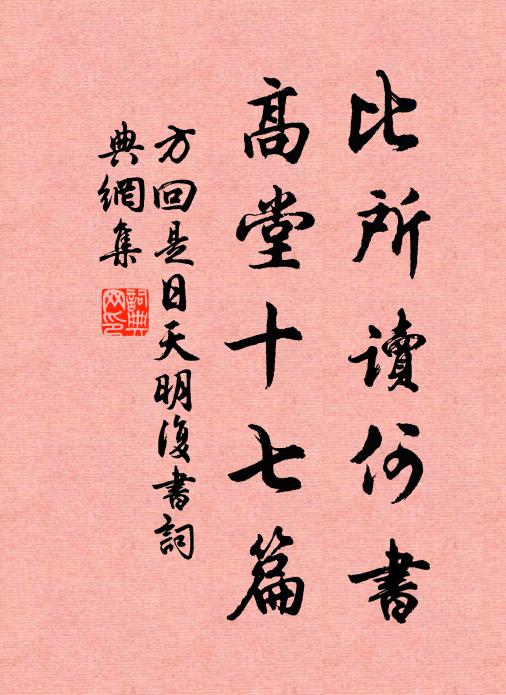 比所讀何書
高堂十七篇
方回是日天明復書詞
典網集
詞典
网印